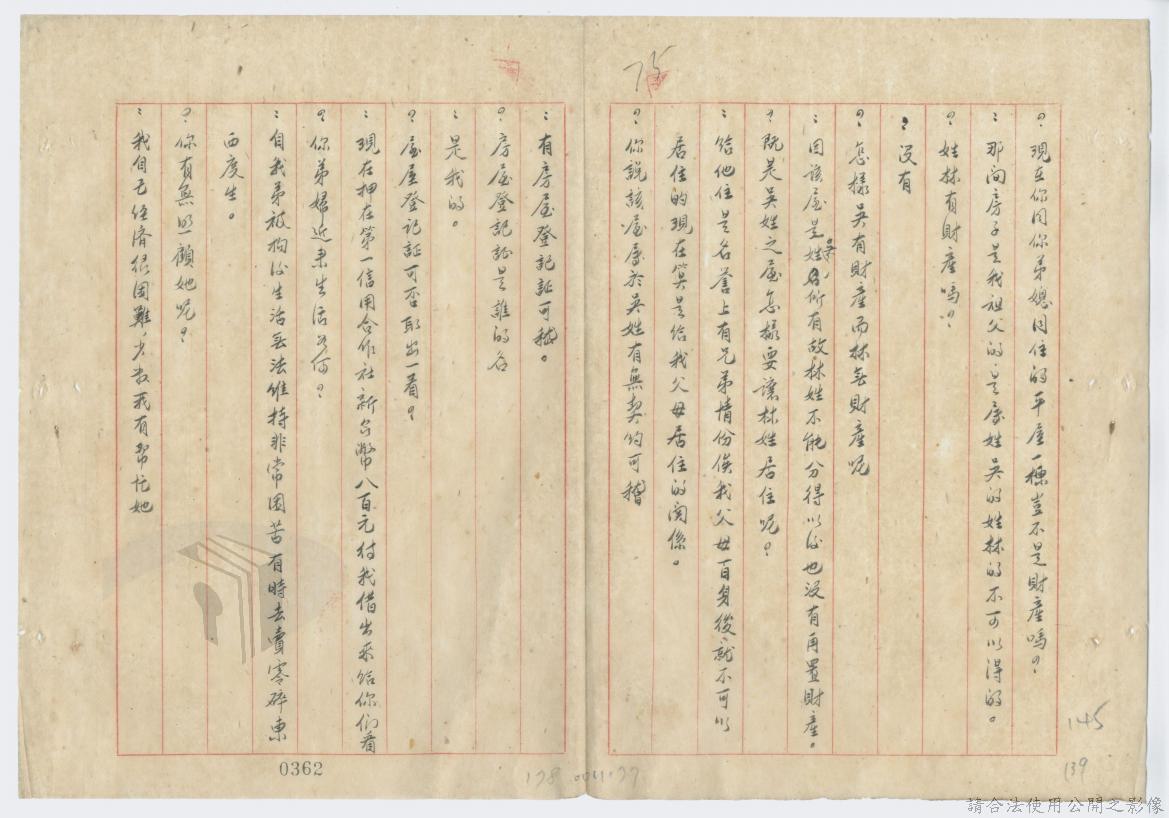 75
?現在你同你弟媳同住的平屋一棟豈不是財產嗎?
:那間房子是我祖父的是屬姓吳的姓林的不可以得的。
?姓林有財產嗎?
:沒有
?怎樣吳有財產而林無財產呢
:因該屋是姓吳所有故林姓不能分得以後也沒有再置財產。
?既是吳姓之屋怎樣要讓林姓居住呢?
:給他住是名誉上有兄弟情份俟我父母百歲後就不可以
居住的現在算是給我父母居住的関係。
?你說該屋屬於吳姓有無契約可稽
:有房屋登記証可稽。
?房屋登記証是誰的名
:是我的。
?屋屋登記証可否取出一看?
:現在押在第一信用合作社新台幣八百元待我借出來給你们看
?你弟婦近來生活若何?
:自我弟被拘後生活無法維持非常困苦有時去賣零碎東
西度生。
?你有無照顧她呢?
:我自己經濟很困難,少数我有幫忙她
145
139
0362
178.004.77
請合法使用公開之影像